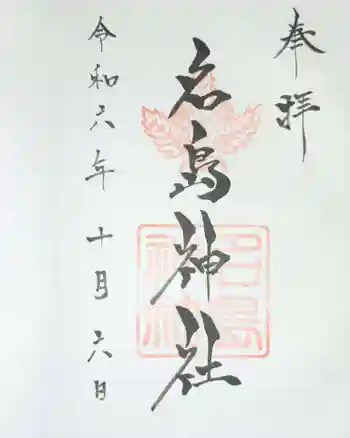 奉拝
名島神社
名島神社
令和六年十月六日